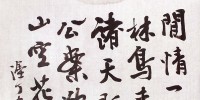 閒情一
林鳥
諸天
公案
山空花